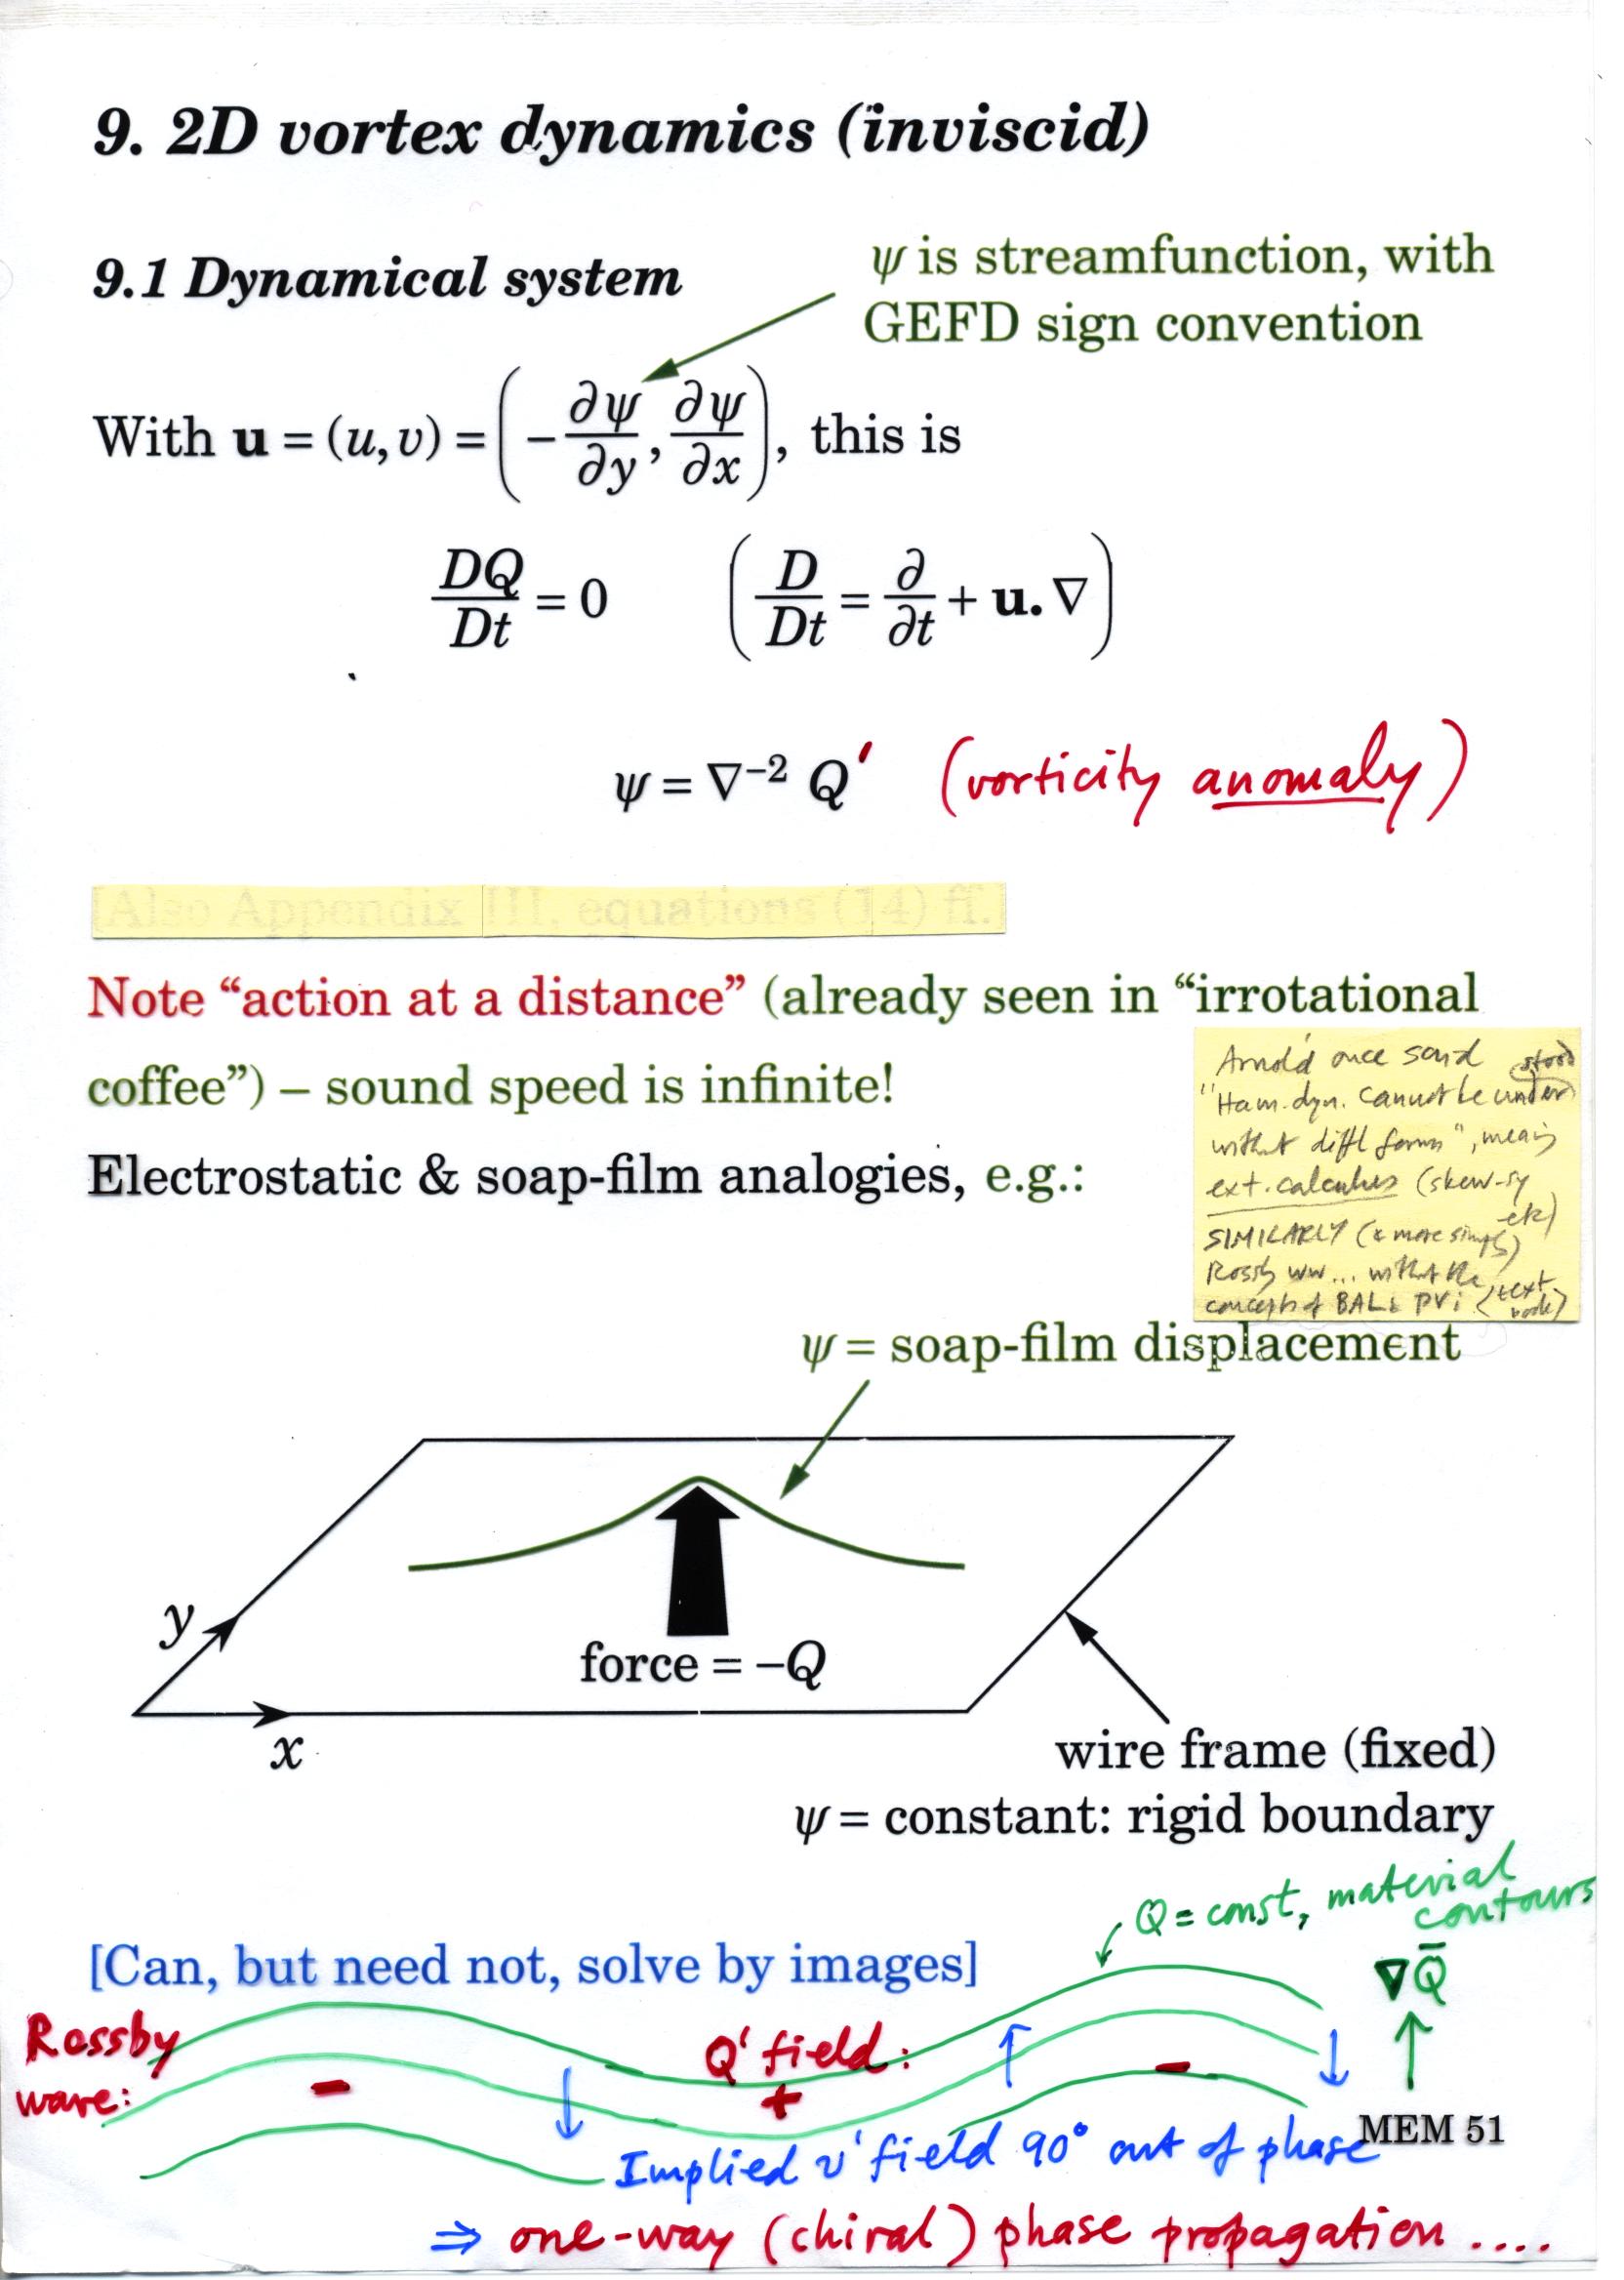 9. 2D vortex dynamics (inviscid)
9.1 Dynamical system
ψ is streamfunction, with
GEFD sign convention
With u = (u, v) = (−∂ψ/∂y, ∂ψ/∂x), this is
DQ/Dt = 0 (D/Dt = ∂/∂t + u.∇)
ψ = ∇⁻² Q′ (vorticity anomaly)
[Also Appendix III, equations (14) ff.]
Note “action at a distance” (already seen in “irrotational
coffee”) – sound speed is infinite!
Electrostatic & soap-film analogies, e.g.:
Arnol'd once said
"Ham. dyn. cannot be understood
without diffl forms", meaning
ext. calculus (skew-sy
etc)
SIMILARLY (& more simply)
Rossby ww... without the
concepts of BAL & PVi (text
book)
ψ = soap-film displacement
force = −Q
y
x
wire frame (fixed)
ψ = constant: rigid boundary
Q = const, material
contours
[Can, but need not, solve by images]
∇Q̄
Rossby
wave:
Q′ field:
−
+
−
MEM 51
Implied v′ field 90° out of phase
⇒ one-way (chiral) phase propagation ....